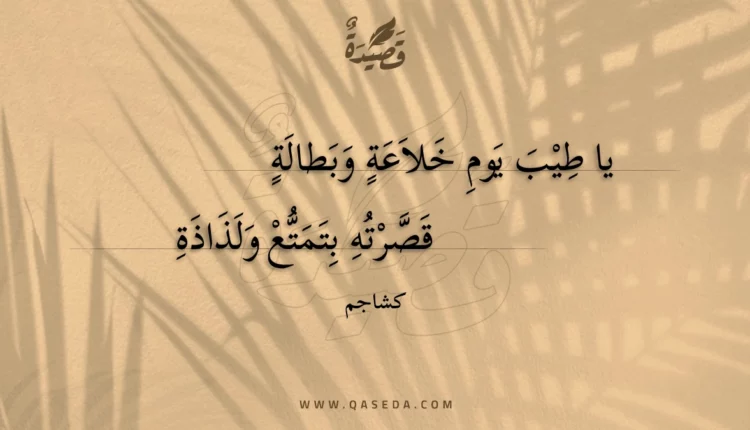 قَصِيْدَةٌ
يا طِيْبَ يَومِ خَلاَعَةٍ وَبَطالَةٍ
قَصَّرْتُهِ بِتَمَتُّعْ وَلَذَاذَةِ
كشاجم
WWW.QASEDA.COM